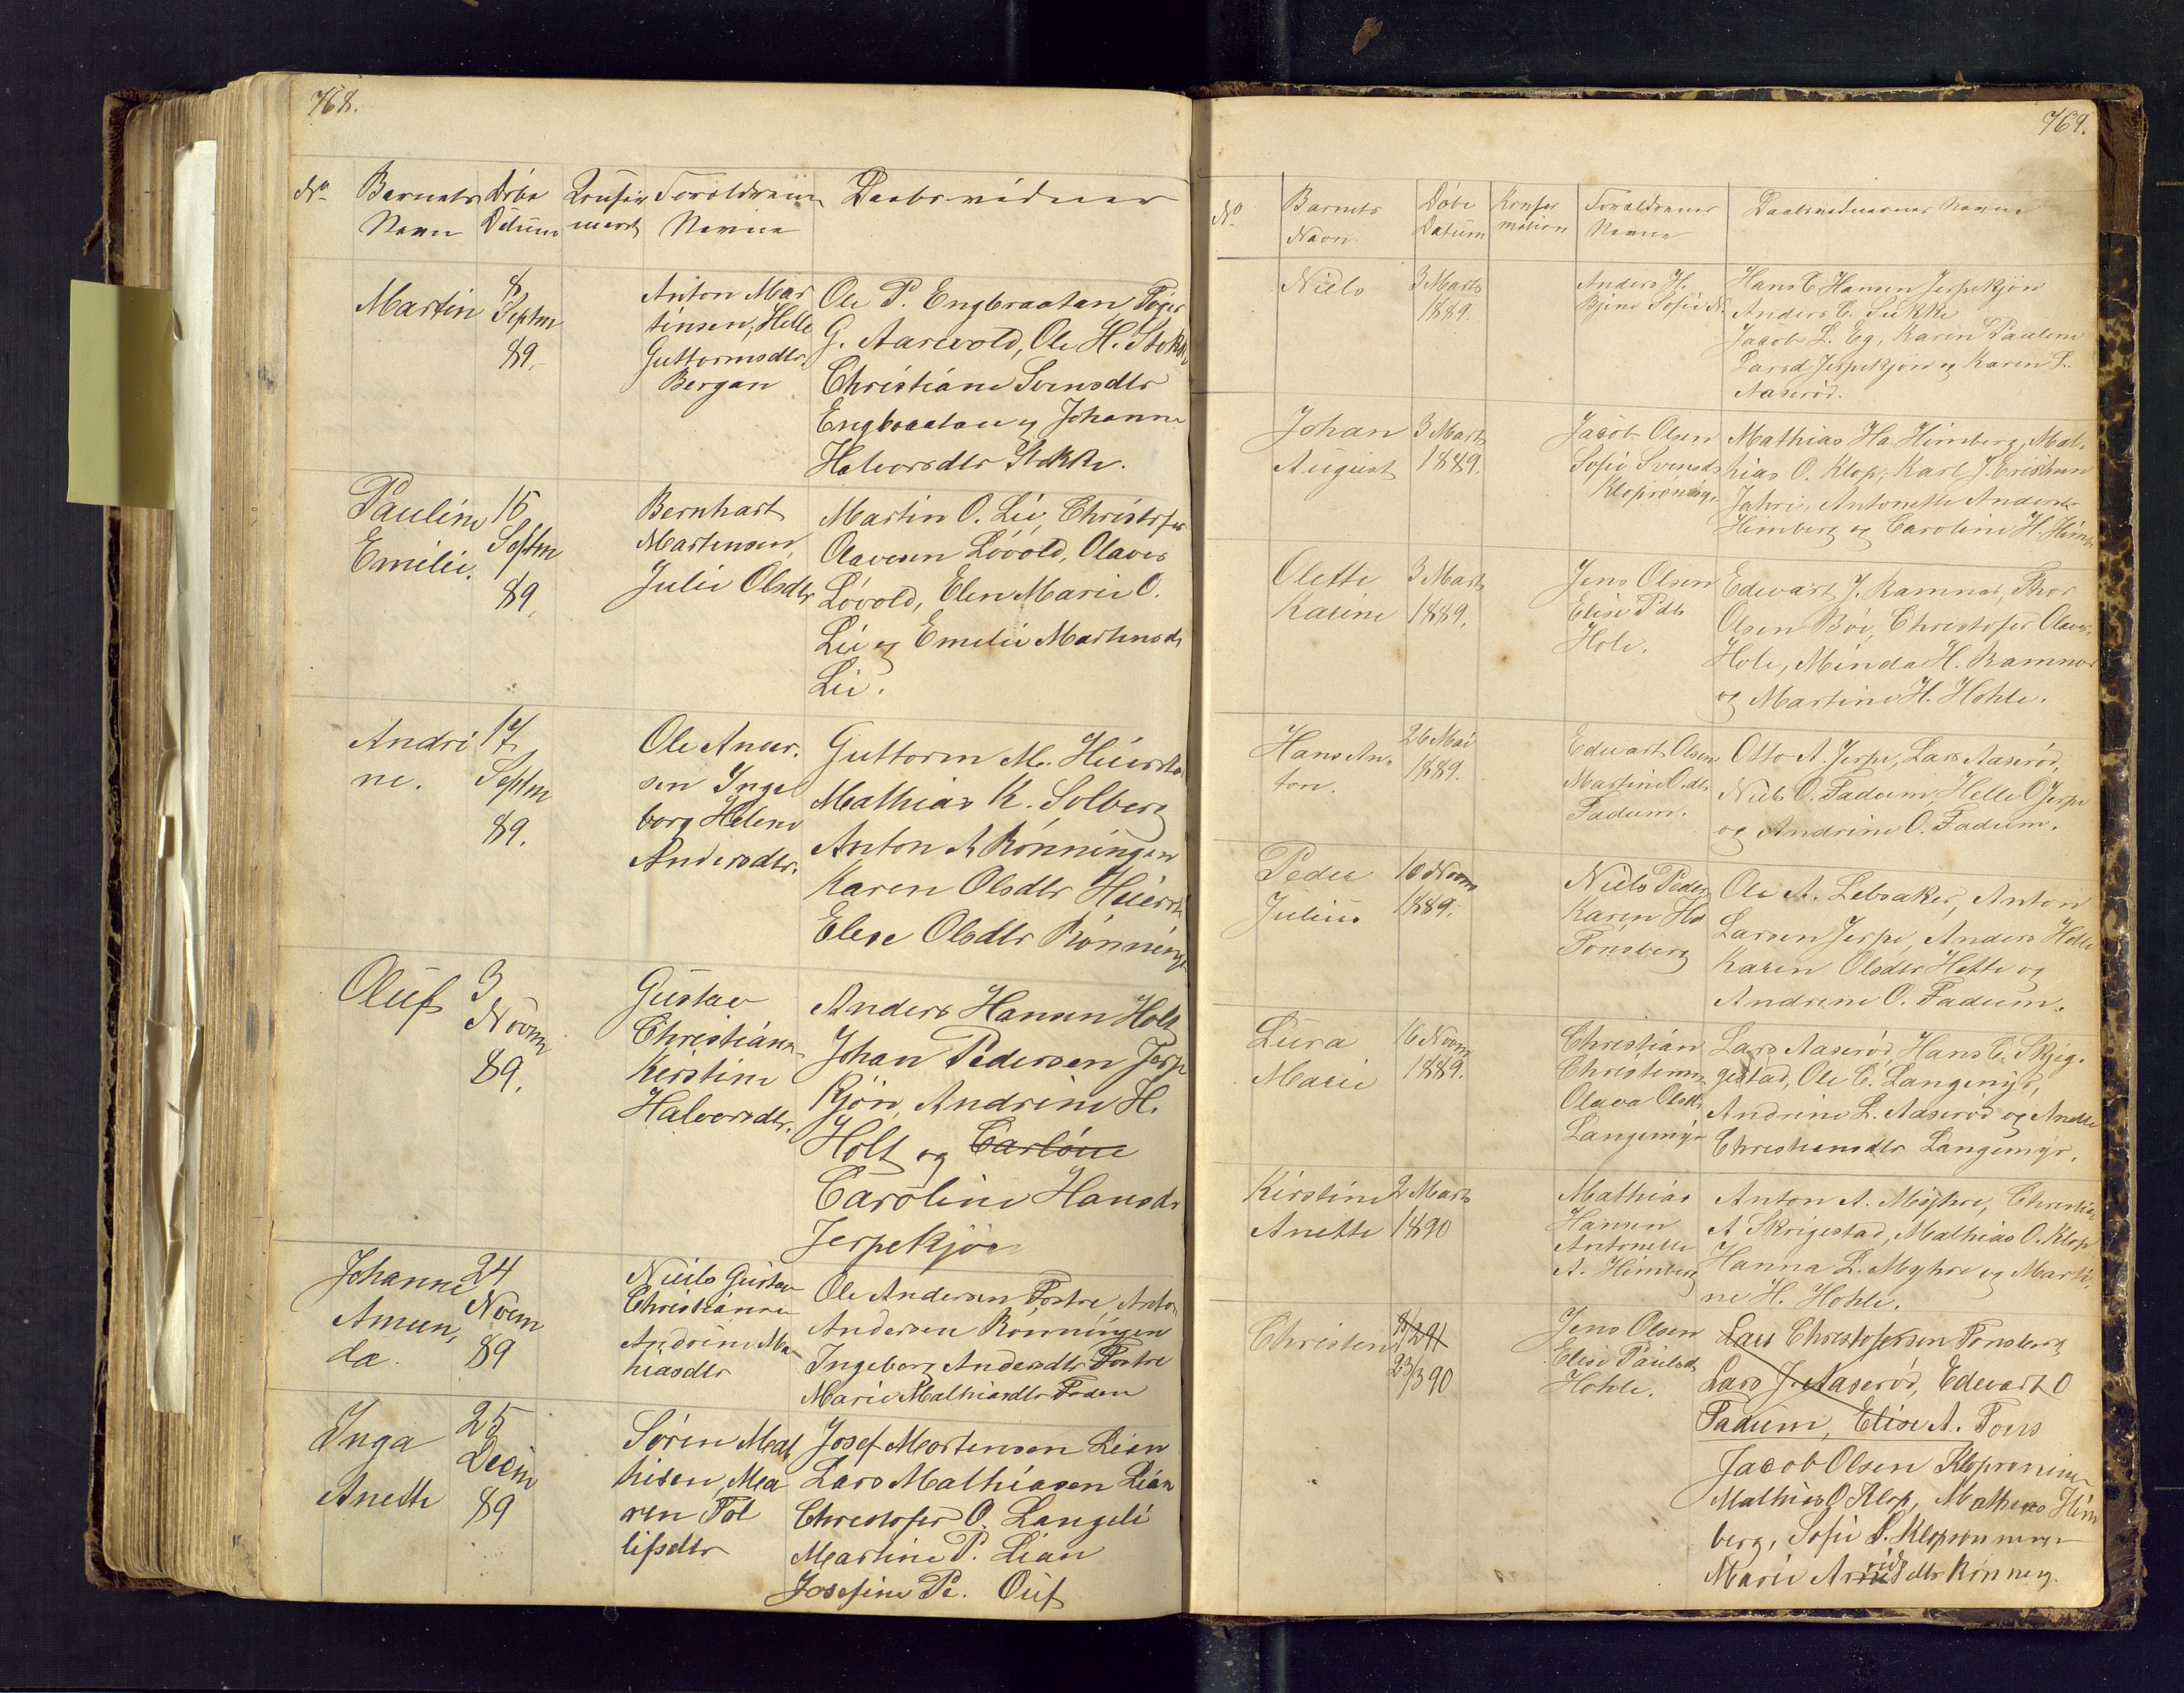 768.
No Barnets Navn Døbe Datum Forældrenes Navne
Martin
8 Septm 89.
Anton Mar
tinsen, Helle
Guttormsdtr.
Bergan
Ole P. Engbraatan, Toger
G. Aarevold, Ole H. Stokke
Christiane Svensdtr
Engbraatan og Johanne
Halvorsdtr Stokke.
Pauline
Emilie.
15 Septm 89,
Bernhart
Martensen,
Julie Olsdtr
Martin O. Lie, Christofer
Olavesen Lövold, Olaves
Lövold, Elen Marie O.
Lie og Emelie Martensdt
Lie.
Andri
ne.
17 Septm 89.
Ole Ander.
sen Inge
borg Helene
Andersdtr.
Guttorm M.
Mathias K. Solberg
Anton A Rönningen
Karen Olsdtr
Elese Olsdtr Rönninge
Oluf
3 Novm 89.
Gustav
Christians
Kirstine
Halvorsdtr.
Anders Hansen Holt
Johan Pedersen Jerp
kjön, Andrine H.
Holt og Carlöine
Caroline Hansdt
Jerpekjön
Johanne
Amun,
da.
24 Novm 89
Niels Gustav
Christianse
Andrine Ma
hiasdtr
Ole Andersen Fostre, Anton
Andersen Rönningen
Ingeborg Andersdtr Fostre
Marie Mathiasdtr
Inga
Anette
25 Decm 89
Sörin Mat
hisen, Ma
ren Tol
lifsdtr
Josef Mortensen Lian
Lars Mathiasen Lian
Christofer O. Langeli
Martine P. Lian
Josefine Pe.
769.
No Barnets Navn. Døbe Datum Konfer mation Forældrenes Navne Daabsvidnernes Navne
Niels
3 Marts 1889.
Anders H.
Sofie N.
Hans C Hansen Jerpekjön
Anders C. Sukke
Jacob L. Eg, Karen Pauline
Larsd Jerpekjön og Karen L.
Aaseröd.
Johan
August
3 Marts 1889.
Jacob Olsen
Sofie Svensdt
Klopröninge
Mathias Ha. Himberg, Mat.
hias O. Klop, Karl J.
Antonette Andersdt
Himberg og Caroline H. Himb
Olette
Karine
3 Marts 1889.
Jens Olsen
Elise P.dtr
Hole.
Edevart J. Ramnas, Thor
Olsen Böe, Christofer Olaves,
Hole, Minda H. Ramnas
og Martine H. Hohle.
Hans An.
ton.
26 Mai 1889.
Edevart Olsen
Martine O.dtr
Fadum.
Otto A. Jerpe, Lars Aaseröd,
Niels O. Fadum, Helle O Jerpe
og Andrine O. Fadum.
Peder
Julius
10 Novm 1889.
Niels Peders
Karen
Tonsberg
Ole A. Lebsaker, Anton
Larsen Jerpe, Anders Helle
Karen Olsdtr Hette og
Andrine O. Fadum.
Lura
Marie
16 Novm 1889.
Christian
Christensen
Olava Olsdt.
Langemyr
Lars Aaseröd, Hans C. Skjeg.
gestad, Ole C. Langemyr,
Andrine L. Aaseröd og Anette
Christensdtr Langemyr.
Kirstine
Anette
2 Marts 1890
Mathias
Hansen
Antonette
A. Himberg
Anton A. Myhre, Christian
A Skrigestad, Mathias O. Klop
Hanna L. Myhre og Marti,
ne H. Hohle.
Christen
23/3 90
Jens Olsen
Elise Paulsdt
Hohle.
Lars Christofersen Tonsberg
Lars J. Aaseröd, Edevart O
Fadum, Elise A. Tons
Jacob Olsen Klopronin
Mathias O Klop, Mathias Him
berg, Sofie S. Kloprönningen
Marie